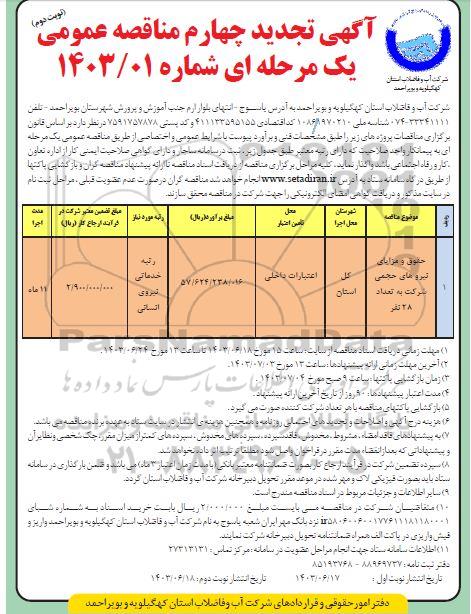 (نوبت دوم)
آگهی تجدید چهارم مناقصه عمومی
یک مرحله ای شماره ۱۴۰۳/۰۱
شرکت آب و فاضلاب استان
کهگیلویه و بویراحمد
شرکت آب و فاضلاب استان کهگیلویه و بویراحمد به آدرس یاسوج - انتهای بلوار ارم جنب آموزش و پرورش شهرستان بویراحمد - تلفن
۰۷۴-۳۳۳۴۱۱۱۱ شناسه ملی ۱۰۸۶۱۹۷۰۲۱۰ کد اقتصادی ۴۱۱۱۳۳۵۹۵۱۵۵ و کد پستی ۷۵۹۱۷۵۷۸۷۸ در نظر دارد بر اساس قانون
برگزاری مناقصات پروژه های زیر را طبق مشخصات فنی و برآورد پیوست با شرایط عمومی و اختصاصی از طریق مناقصه عمومی یک مرحله
ای به پیمانکار واجد صلاحیت که دارای رتبه معتبر طبق جدول زیر، ثبت در سامانه ساجار و دارای گواهی صلاحیت ایمنی کار از اداره تعاون
،کار و رفاه اجتماعی باشد واگذار نماید. کلیه مراحل برگزاری مناقصه از دریافت اسناد مناقصه تا ارائه پیشنهاد مناقصه گران و بازگشایی پاکتها
از طریق درگاه سامانه ستاد به آدرس www.setadiran.ir انجام خواهد شد مناقصه گران در صورت عدم عضویت قبلی ، مراحل ثبت نام
در سایت مذکور و دریافت گواهی امضای الکترونیکی را جهت شرکت در مناقصه محقق سازند.
ردیف
موضوع مناقصه
شهرستان محل اجرا
محل تامین اعتبار
مبلغ برآورد(ریال)
رتبه مورد نیاز
مبلغ تضمین معتبر شرکت در فرآیند ارجاع کار (ریال)
مدت اجرا
۱
حقوق و مزایای نیرو های حجمی شرکت به تعداد ۲۸ نفر
کل استان
اعتبارات داخلی
۵۷/۶۲۴/۲۳۸/۰۱۶
رتبه خدماتی نیروی انسانی
۲/۹۰۰/۰۰۰/۰۰۰
۱۱ ماه
۱) مهلت زمانی دریافت اسناد مناقصه از سایت: ساعت ۱۵ مورخ ۱۴۰۳/۰۶/۱۸ تا ساعت ۱۳ مورخ ۱۴۰۳/۰۶/۲۴.
۲) آخرین مهلت زمانی ارائه پیشنهادها: ساعت ۱۳ مورخ ۱۴۰۳/۰۷/۰۳
۳) زمان بازگشایی پاکتها: ساعت ۹ صبح مورخ ۱۴۰۳/۰۷/۰۴ .
۴) مدت اعتبار پیشنهادها: ۹۰ روز از تاریخ آخرین ارائه پیشنهاد.
۵) بازگشایی پاکتهای مناقصه با هر تعداد شرکت کننده صورت می گیرد.
۶) هزینه درج آگهی و اصلاحات و تجدیدهای احتمالی روزنامه و همچنین هزینه ی انتشار در سایت ستاد به عهده برنده مناقصه می باشد.
۷) به پیشنهادهای فاقد امضاء، مشروط، مخدوش، فاقد سپرده، سپرده های مخدوش، سپرده های کمتر از میزان مقرر، چک شخصی و نظایر آن
و پیشنهاداتی که بعد از انقضاء مدت مقرر در فراخوان واصل شود مطلقا ترتیب اثر داده نخواهد شد.
۸) سپرده تضمین شرکت در فرآیند ارجاع کار بصورت ضمانتنامه معتبر بانکی (با مدت زمان اعتبار ۳ماه) می باشد و ضمن بارگذاری در سامانه
ستاد باید بصورت فیزیکی لاک و مهر شده در موعد مقرر تحویل دبیرخانه شرکت آب و فاضلاب استان گردد.
۹) سایر اطلاعات و جزئیات مربوط در اسناد مناقصه مندرج است.
۱۰) متقاضیان شرکت در مناقصه می بایست مبلغ ۲/۰۰۰/۰۰۰ ریال بابت خرید اسناد به شماره شبای
ir۵۸۰۶۰۰۶۰۰۱۷۷۶۱۱۱۸۱۱۸۰۰۰۱ نزد بانک مهر ایران شعبه یاسوج به نام شرکت آب و فاضلاب استان کهگیلویه و بویراحمد واریز و
فیش واریزی در پاکت الف همراه ضمانتنامه تحویل دبیرخانه شرکت نمایند.
۱۱) اطلاعات سامانه ستاد جهت انجام مراحل عضویت در سامانه: مرکز تماس : ۲۷۳۱۳۱۳۱
دفتر ثبت نامه : ۸۸۹۶۹۷۳۷ - ۸۵۱۹۳۷۶۸
تاریخ انتشار نوبت اول: ۱۴۰۳/۰۶/۱۷ تاریخ انتشار نوبت دوم: ۱۴۰۳/۰۶/۱۸
دفتر امور حقوقی و قراردادهای شرکت آب و فاضلاب استان کهگیلویه و بویراحمد